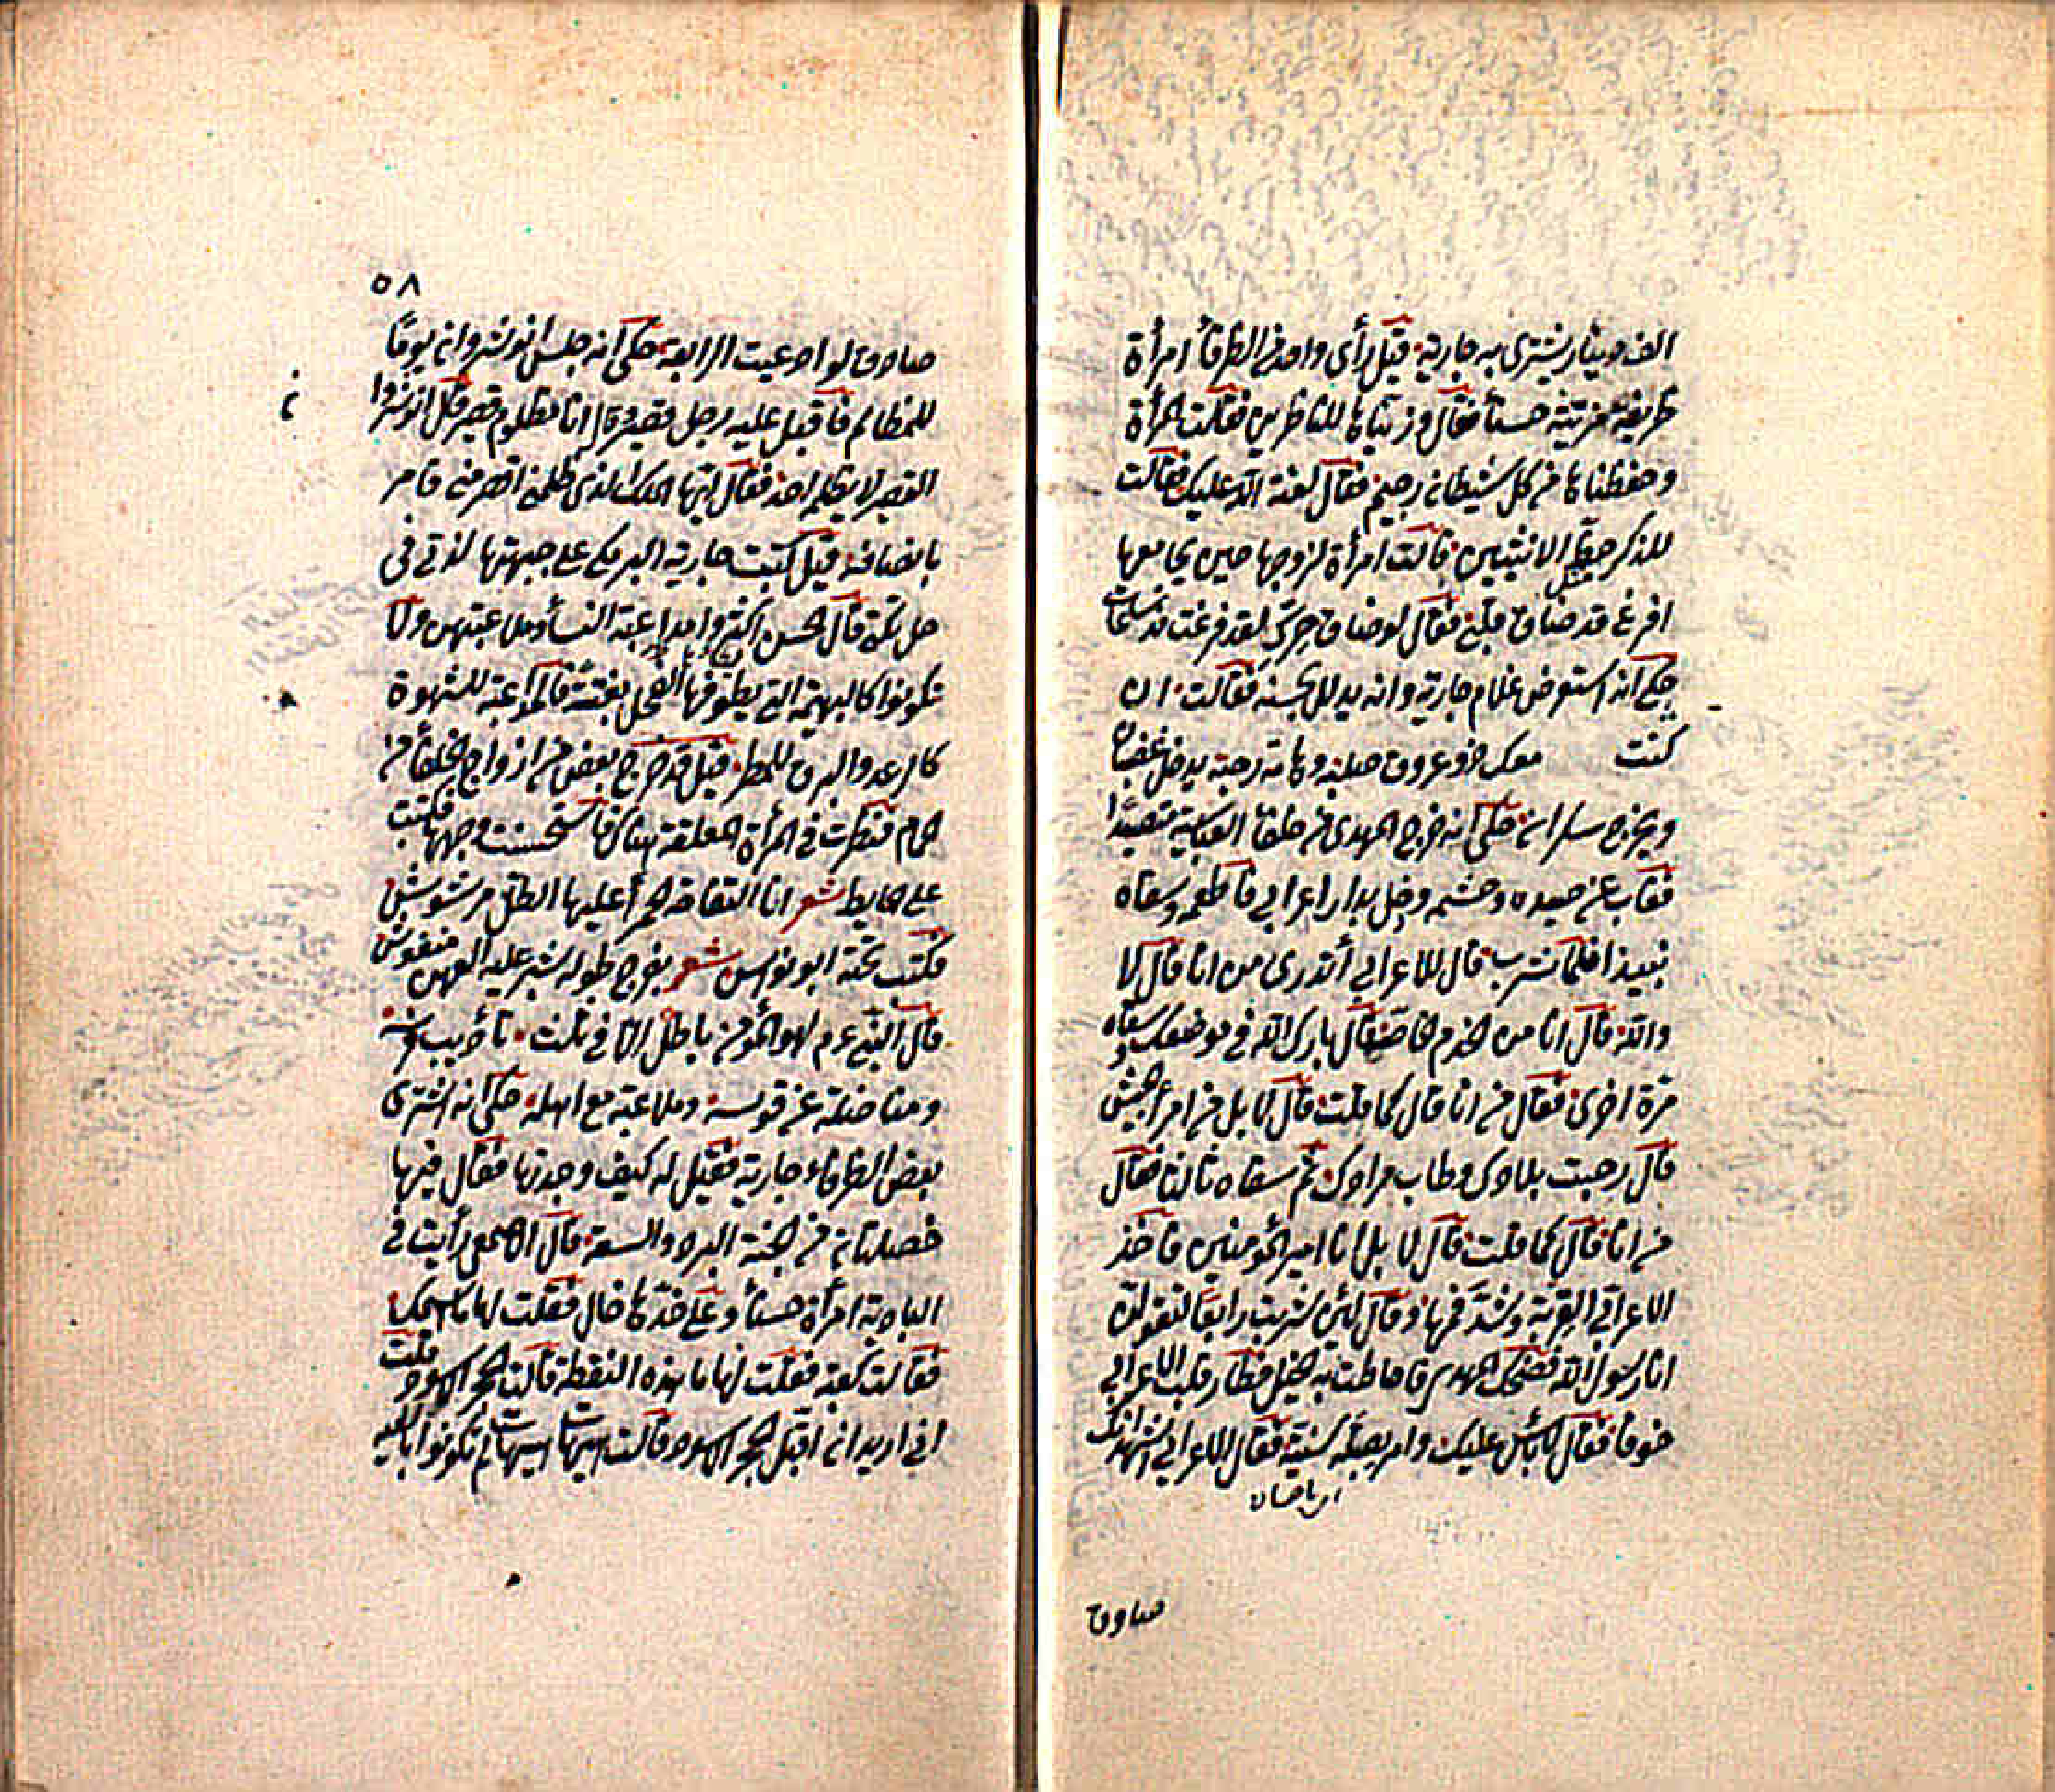 الف دينار يشترى به جارية قيل رأى واحد من الظرفاء امرأة
ظريفة مزينة حسنأ فقال وزيناها للناظرين فقالت المرأة
وحفظناها من كل شيطان رجيم فقال لعنة الله عليك فقالت
للذكر مثل حظ الانثيين قالت امرأة لزوجها حين يجامعها
افرغ قد ضاق قلبى فقال لو ضاق حرك لقد فرغت مذ ساعات
حكى انه استعرض غلام جارية وانه يدلل بحسنه فقالت ان
كنت معك ذو عروق صلبة وهامة رحبة يدخل غضبان
ويخرج سكران حكى انه خرج المهدى من خلفأ العباسية متصيدا
فغاب عن صيده وحشمه ودخل بدار اعرابي فاطعمه وسقاه
نبيذا فلما شرب قال للاعرابي أتدرى من انا قال لا
والله قال انا من الخدم الخاصة فقال بارك الله فى موضعك وسقاه
مرة اخرى فقال من انا قال كما قلت قال لا بل من امرأ الجيش
قال رحبت بلادك وطاب مرادك ثم سقاه ثالثا فقال
من انا قال كما قلت قال لا بل انا امير المؤمنين فاخذ
الاعرابي القربة وشد فمها وقال لئن شربت رابعا لتقولن
انا رسول الله فضحك المهدى فاحاطت به الخيل فطار قلب الاعرابي
خوفا فقال لا بأس عليك وامر بصلة سنية فقال الاعرابي اشهد انك
صادق
٥٨
صادق ولو ادعيت الرابعة حكى انه جلس انوشروان يوما
للمظالم فاقبل عليه رجل قصير وقال انا مظلوم قصير فقال انوشروا
ن
القصير لا يظلم احد فقال ايها الملك الذى ظلمنى اقصر منى فامر
بانصافه قيل كتبت جارية البرمكى على جبهتها لذتى فى
حل تكتى قال الحسن اكثروا مداعبة النسأ وملاعبتهن ولا
تكونوا كالبهيمة التى يطرقها الفحل بغتة فالمداعبة للشهوة
كالرعد والبرق للمطر قيل قد خرج بعض من ازواج الخلفأ من
الحمام فنظرت فى المرأة المعلقة هناك فاستحسنت وجهها فكتبت
على الحايط شعر انا التفاحة الحمرأ عليها الطل مرشوش
فكتب تحته ابو نواس شعر بفرج طوله شبر عليه العهن منفوش
قال النبى عم لهو المؤمن باطل الا فى ثلث تأديب فرسه
ومناضلة عن قوسه وملاعبة مع اهله حكى انه اشترى
بعض الظرفاء جارية فقيل له كيف وجدتها فقال فيها
خصلتان من الجنة البرد والسعة قال الاصمعى رأيت فى
البادية امرأة حسنأ وعلى خدها خال فقلت لها ما اسمك
فقالت كعبة فقلت لها ما هذه النقطة قالت الحجر الاسود قلت
انى اريد ان اقبل الحجر الاسود قالت هيهات هيهات لم تكونوا بالغيه